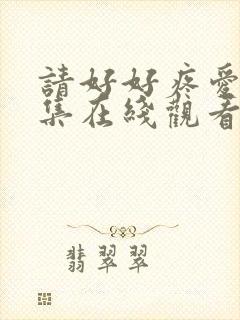 請好好疼愛
集在綫觀看
翡翠翠